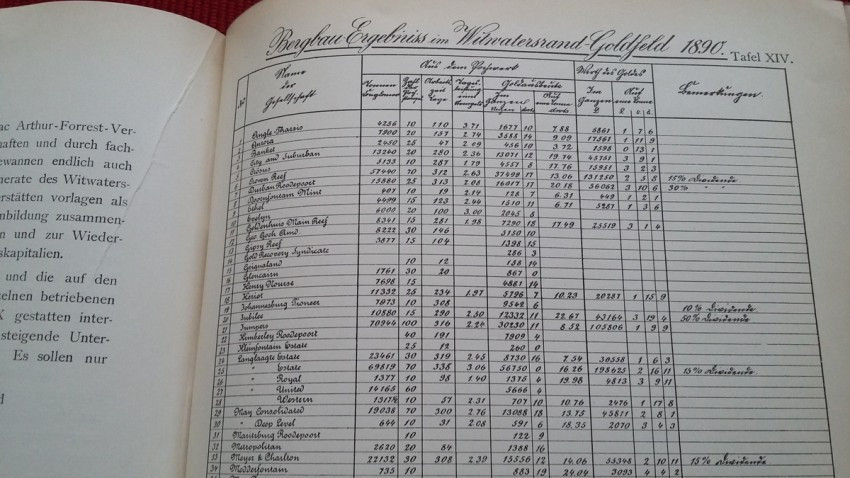 ac Arthur-Forrest-Ver-
haften und durch fach-
ewannen endlich auch
nerate des Witwaters-
rstätten vorlagen als
mbildung zusammen-
n und zur Wieder-
skapitalien.
und die auf den
zelnen betriebenen
X gestatten inter-
steigende Unter-
Es sollen nur
Bergbau Ergebniss im Witwatersrand-Goldfeld 1890.
Tafel XIV.
No Name der Gesellschaft
Aus dem Pochwerk
Werth des Goldes
Bemerkungen
Goldausbeute
Im Ganzen
1 Anglo-Tharsis 4256 10 110 3.71 1677 10 7.88 5861 1 7 6
2 Aurora 7900 20 157 2.74 3588 14 9.09 17361 1 11 9
3 Banket 2450 25 47 2.09 456 10 3.72 1598 0 13 1
4 City and Suburban 13240 20 280 2.36 13071 12 19.74 45751 3 9 1
5 Crösus 5153 10 287 1.79 4557 8 17.76 15951 3 2 3
6 Crown Reef 57440 70 312 2.63 37498 17 13.06 131250 2 5 8 15% Dividende
7 Durban Roodepoort 15880 25 313 2.08 16017 17 20.18 56062 3 10 6 30% "
8 Doornfontein 407 10 19 2.14 128 7 6.31 449 1 2 1
9 4499 15 123 2.44 1510 11 6.71 5287 1 3 6
10 Evelyn 6000 20 100 3.00 2045 8
11 Geldenhuis Main Reef 8341 15 281 1.98 7290 18 17.49 25519 3 1 4
12 Geo Goch Amd. 8222 30 146 3150 10
13 Gipsy Reef 3877 15 104 1398 15
14 Gold Recovery Syndicate 286 3
15 Griqualand 10 12 138 14
16 Glencairn 1761 30 20 867 0
17 Henry Nourse 7698 15 4881 14
18 Heriot 11332 25 234 1.97 5796 7 10.23 20287 1 15 9
19 Johannesburg Pioneer 7873 10 308 9542 6 10% Dividende
20 Jubilee 10880 15 290 2.50 12332 11 22.67 43164 3 19 4 50% Dividende
21 Jumpers 70944 100 316 2.24 30230 11 8.52 105806 1 9 9
22 Kimberley Roodepoort 40 191 7909 4
23 Kleinfontein Estate 25 12 260 0
24 Langlaagte Estate 23461 30 319 2.45 8730 16 7.54 30558 1 6 3
25 " Estate 69819 70 338 3.06 56750 0 16.26 198625 2 16 11 15% Dividende
26 " Royal 1377 10 98 1.40 1375 4 19.98 4813 3 9 11
27 " United 14165 60 5666 4
28 " Western 1317½ 10 57 2.31 707 10 10.76 2476 1 17 8
29 May Consolidated 19038 70 300 2.76 13088 18 13.75 45811 2 8 1
30 " Deep Level 644 10 31 2.08 591 6 18.35 2070 3 4 3
31 Maritzburg Roodepoort 10 122 9
32 Metropolitan 2620 20 84 1388 16
33 Meyer & Charlton 22132 30 308 2.39 15556 12 14.06 55348 2 10 11 15% Dividende
34 Modderfontein 735 10 883 19 24.04 3093 4 4 2